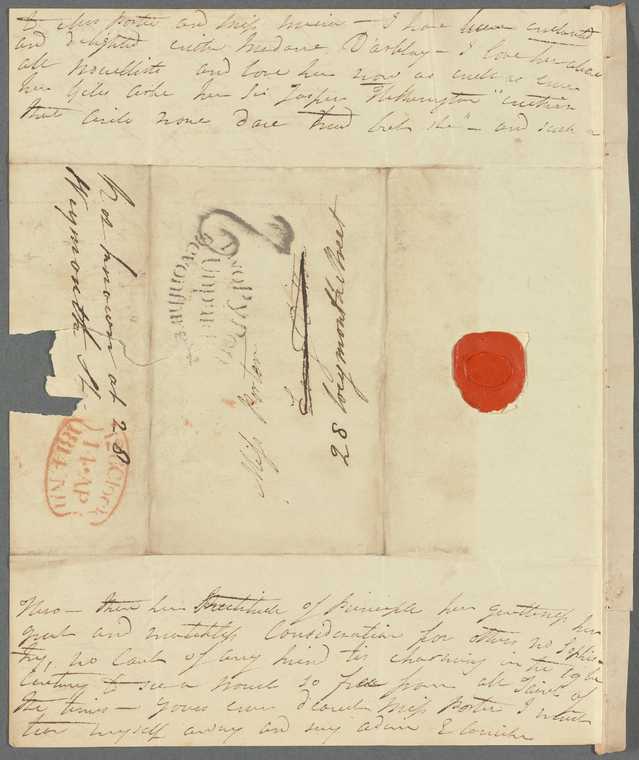 to Mrs Porter and Miss Maria — I have been enchanted
and delighted with Madame D'arblay — I love her above
all Novellists and love her now as well as ever
her Giles Arbe her Sir Jasper Hetherington "within
that Circle none dare tread but she" — and such a
Not known at 28
Weymouth St.
2
TwoPyPost
Unpaid
Devonshire
Miss Porter
28 Weymouth Street
o'Clock
14 • AP
1814 Nn
Hero — then her Rectitude of Principle her gentleness her
great and matchless Consideration for others no Sophis-
try, no Cant of any kind tis charming in the
Century to see a Novel so free from all Taint of
the times — yours ever dearest Miss Porter I must
tear myself away and say adieu E